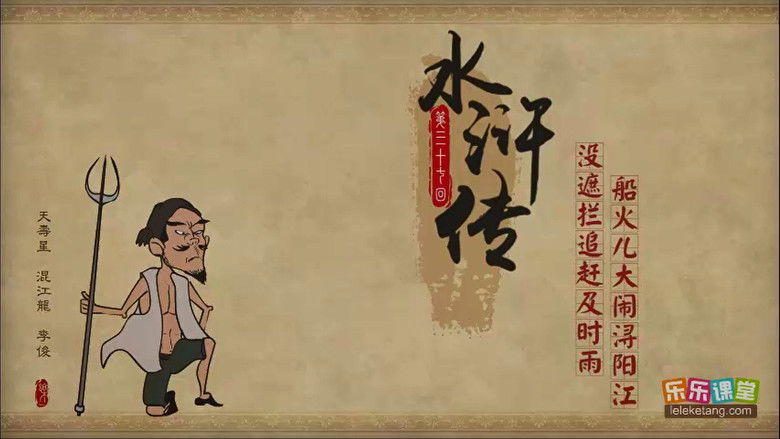 水浒传
第三十七回
没遮拦追赶及时雨
船火儿大闹浔阳江
天壽星 混江龍 李俊
乐乐课堂
leleketang.com